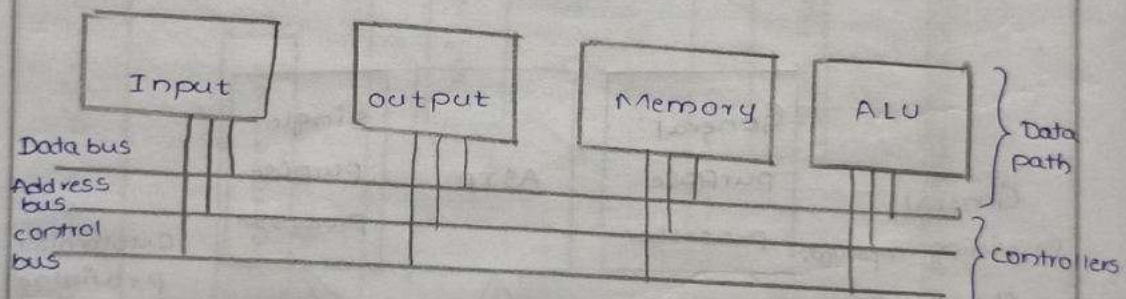 Input
output
Memory
ALU
Data
path
Data bus
Address
bus
control
bus
Controllers